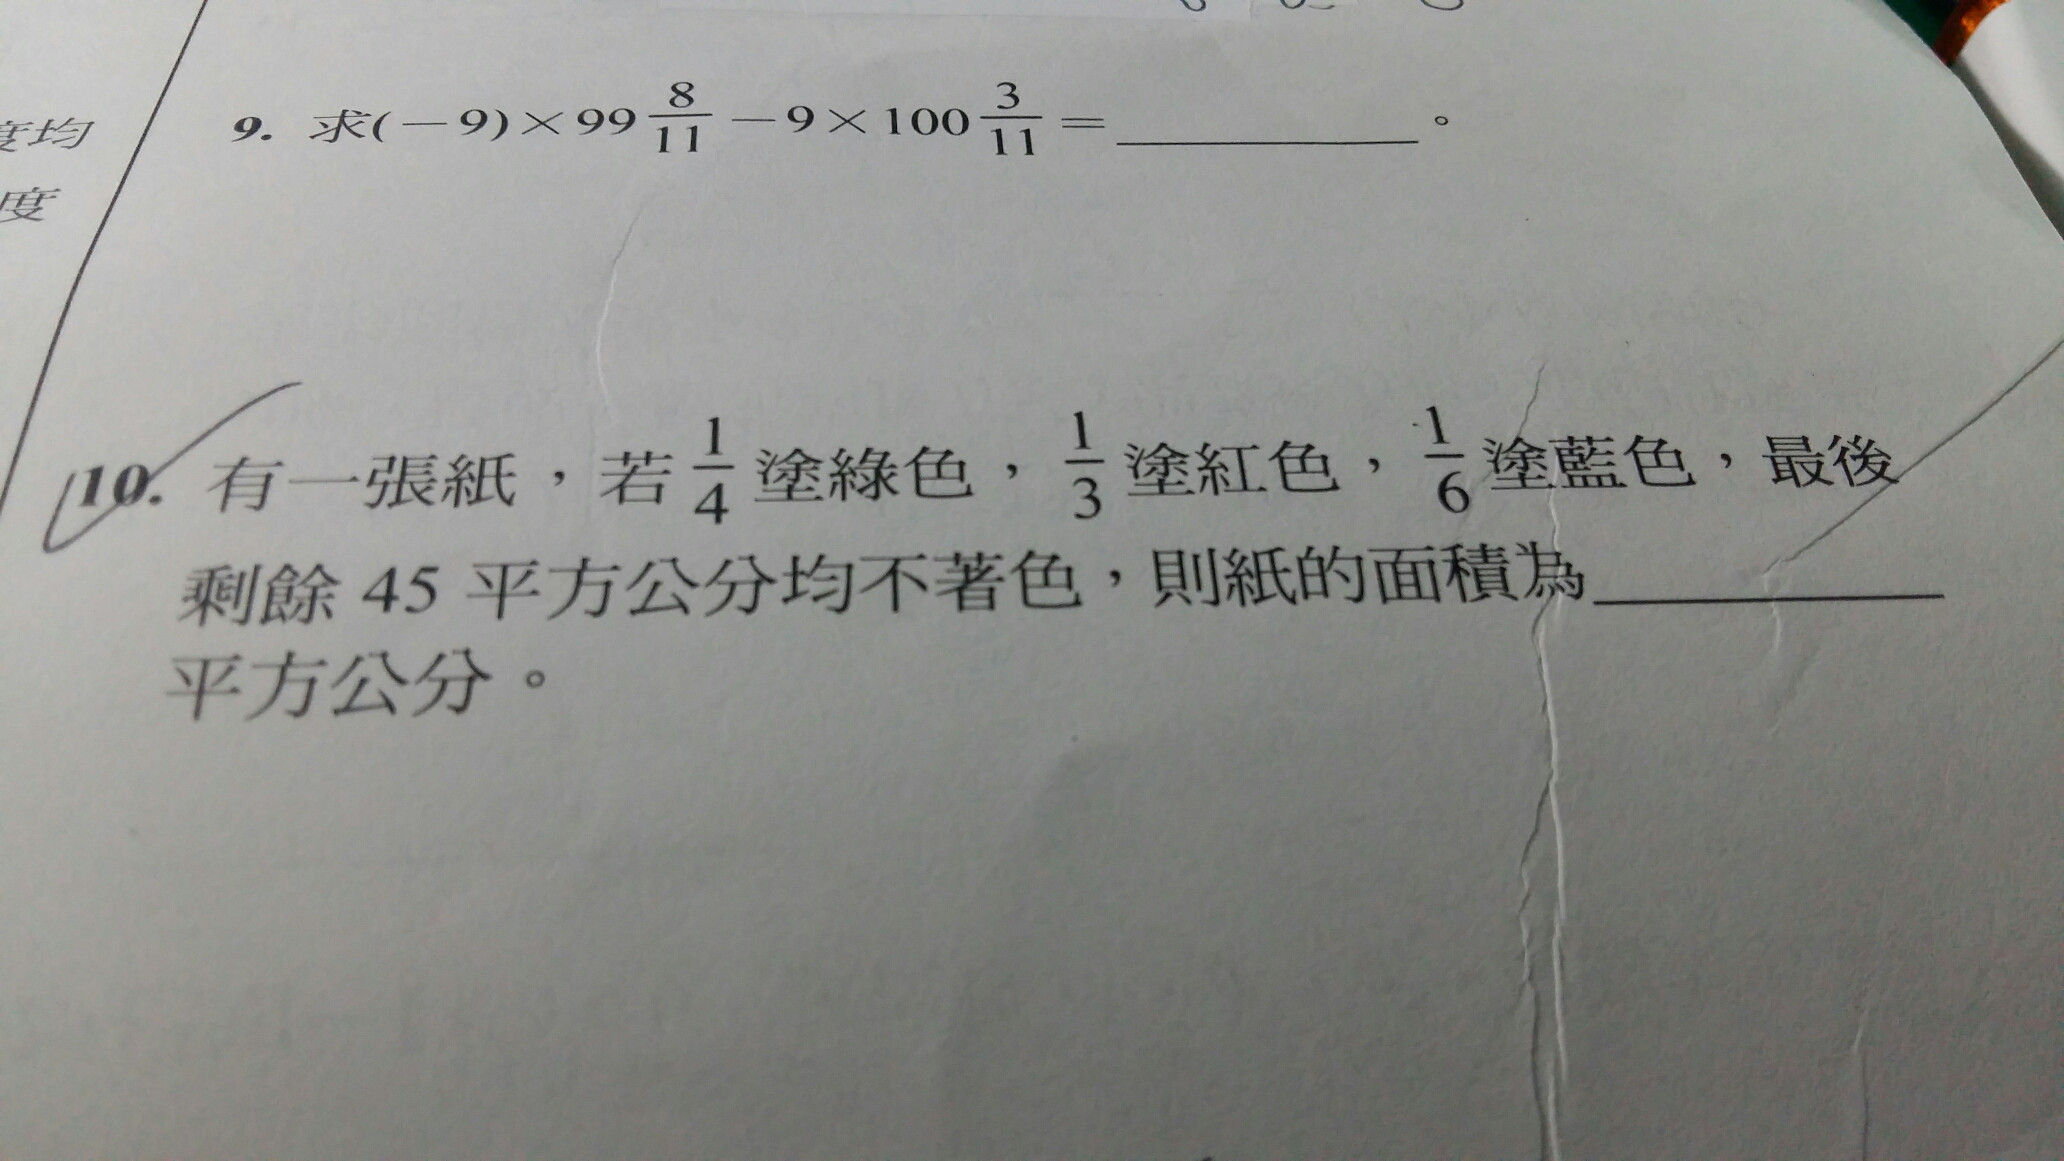 度均
度
9. 求(－9)×99 8/11 －9×100 3/11 ＝＿＿＿＿＿＿。
10. 有一張紙，若 1/4 塗綠色，1/3 塗紅色，1/6 塗藍色，最後
剩餘 45 平方公分均不著色，則紙的面積為＿＿＿＿＿＿
平方公分。